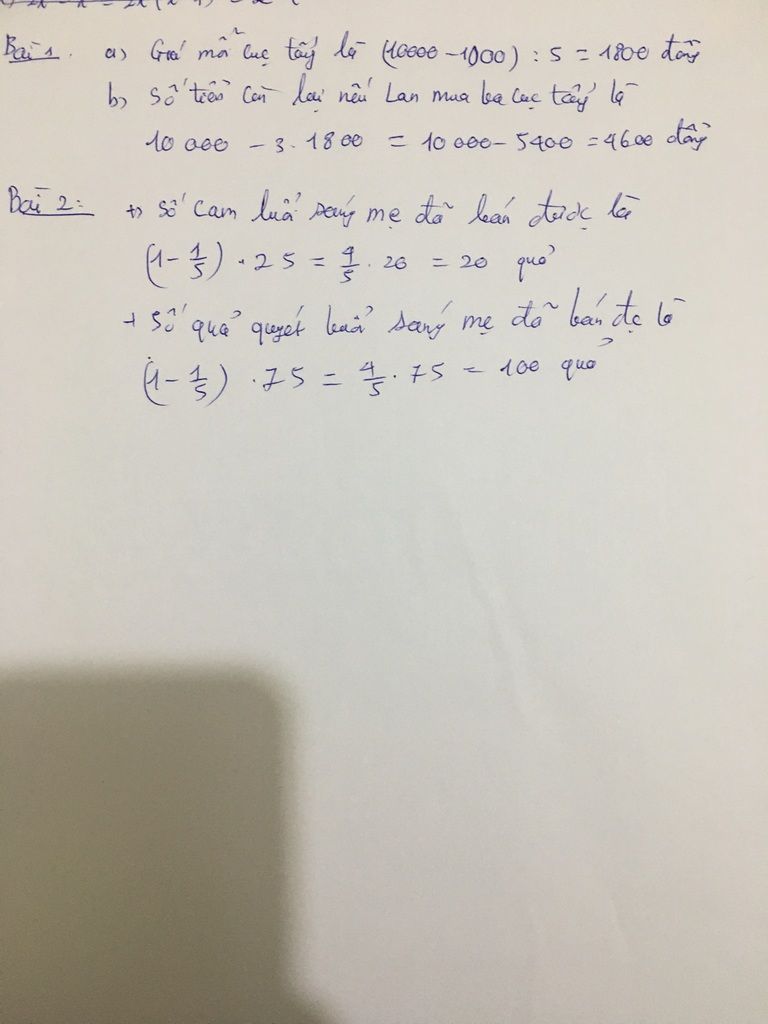 Bài 1. a) Giá mỗi cục tẩy là (10000 - 1000) : 5 = 1800 đồng
b) Số tiền còn lại nếu Lan mua ba cục tẩy là
10 000 - 3 . 1800 = 10 000 - 5400 = 4600 đồng
Bài 2: +) Số cam buổi sáng mẹ đã bán được là
(1 - 1/5) . 25 = 4/5 . 20 = 20 quả
+ Số quả quýt buổi sáng mẹ đã bán đc là
(1 - 1/5) . 75 = 4/5 . 75 = 100 quả